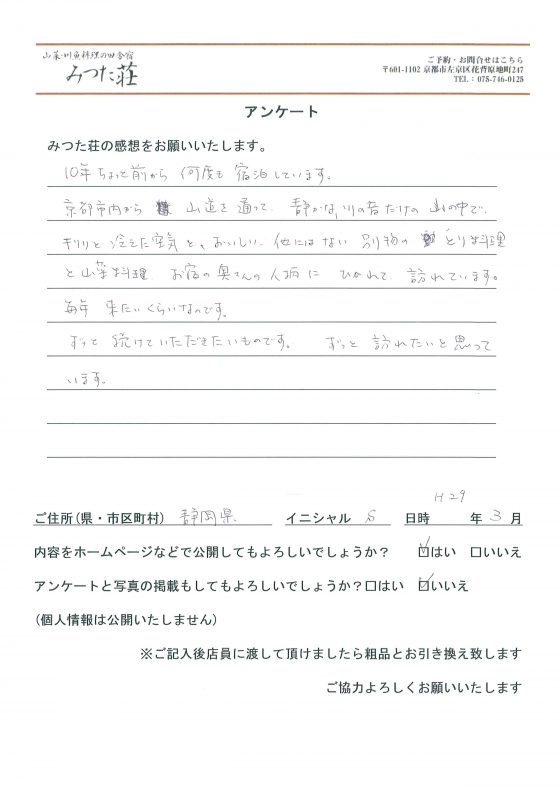 山菜・川魚料理の田舎宿
みつた荘
ご予約・お問合せはこちら
〒601-1102 京都市左京区花背原地町247
TEL：075-746-0125
アンケート
みつた荘の感想をお願いいたします。
10年ちょっと前から 何度も 宿泊しています。
京都市内から 山道を通って、静かな、川の音だけの 山の中で、
キリリと 冷えた空気と、おいしい、他にはない 別物の とり料理
と山菜料理 お宿の奥さんの人柄に ひかれて、訪れています。
毎年 来たいくらいなのです。
ずっと 続けていただきたいものです。 ずっと 訪れたいと思って
います。
ご住所(県・市区町村) 静岡県 イニシャル S 日時 H29 年 3 月
内容をホームページなどで公開してもよろしいでしょうか？ ☑はい □いいえ
アンケートと写真の掲載もしてもよろしいでしょうか？□はい ☑いいえ
(個人情報は公開いたしません)
※ご記入後店員に渡して頂けましたら粗品とお引き換え致します
ご協力よろしくお願いいたします